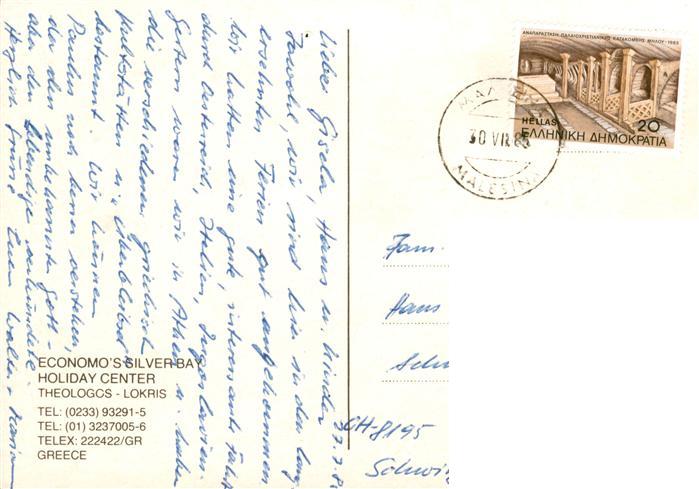 Liebe Gisela, Hans u. Kinder 27.7.85
Jawohl wir sind hier in den lang
ersehnten Ferien gut angekommen
Wir hatten eine gute, interessante Fahrt
durch Österreich, Italien, Jugoslavien.
Gestern waren wir in Athen u. haben
die verschiedenen griechisch
Kultstätten u. Überbleibsel
bestaunt. Wir können
Paulus noch besser verstehen,
der den unbekannten Gott -
aber den Lebendige verkündete.
Herzlich Grüsse Euch Walter + Marian
ECONOMO'S SILVER BAY
HOLIDAY CENTER
THEOLOGOS - LOKRIS
TEL: (0233) 93291-5
TEL: (01) 3237005-6
TELEX: 222422/GR
GREECE
ΑΝΑΠΑΡΑΣΤΑΣΗ ΠΑΛΑΙΟΧΡΙΣΤΙΑΝΙΚΗΣ ΚΑΤΑΚΟΜΒΗΣ ΜΗΛΟΥ - 1985
HELLAS 20
ΕΛΛΗΝΙΚΗ ΔΗΜΟΚΡΑΤΙΑ
30 VII 85
MALESINA
Fam.
Hans
Schw
CH-8195